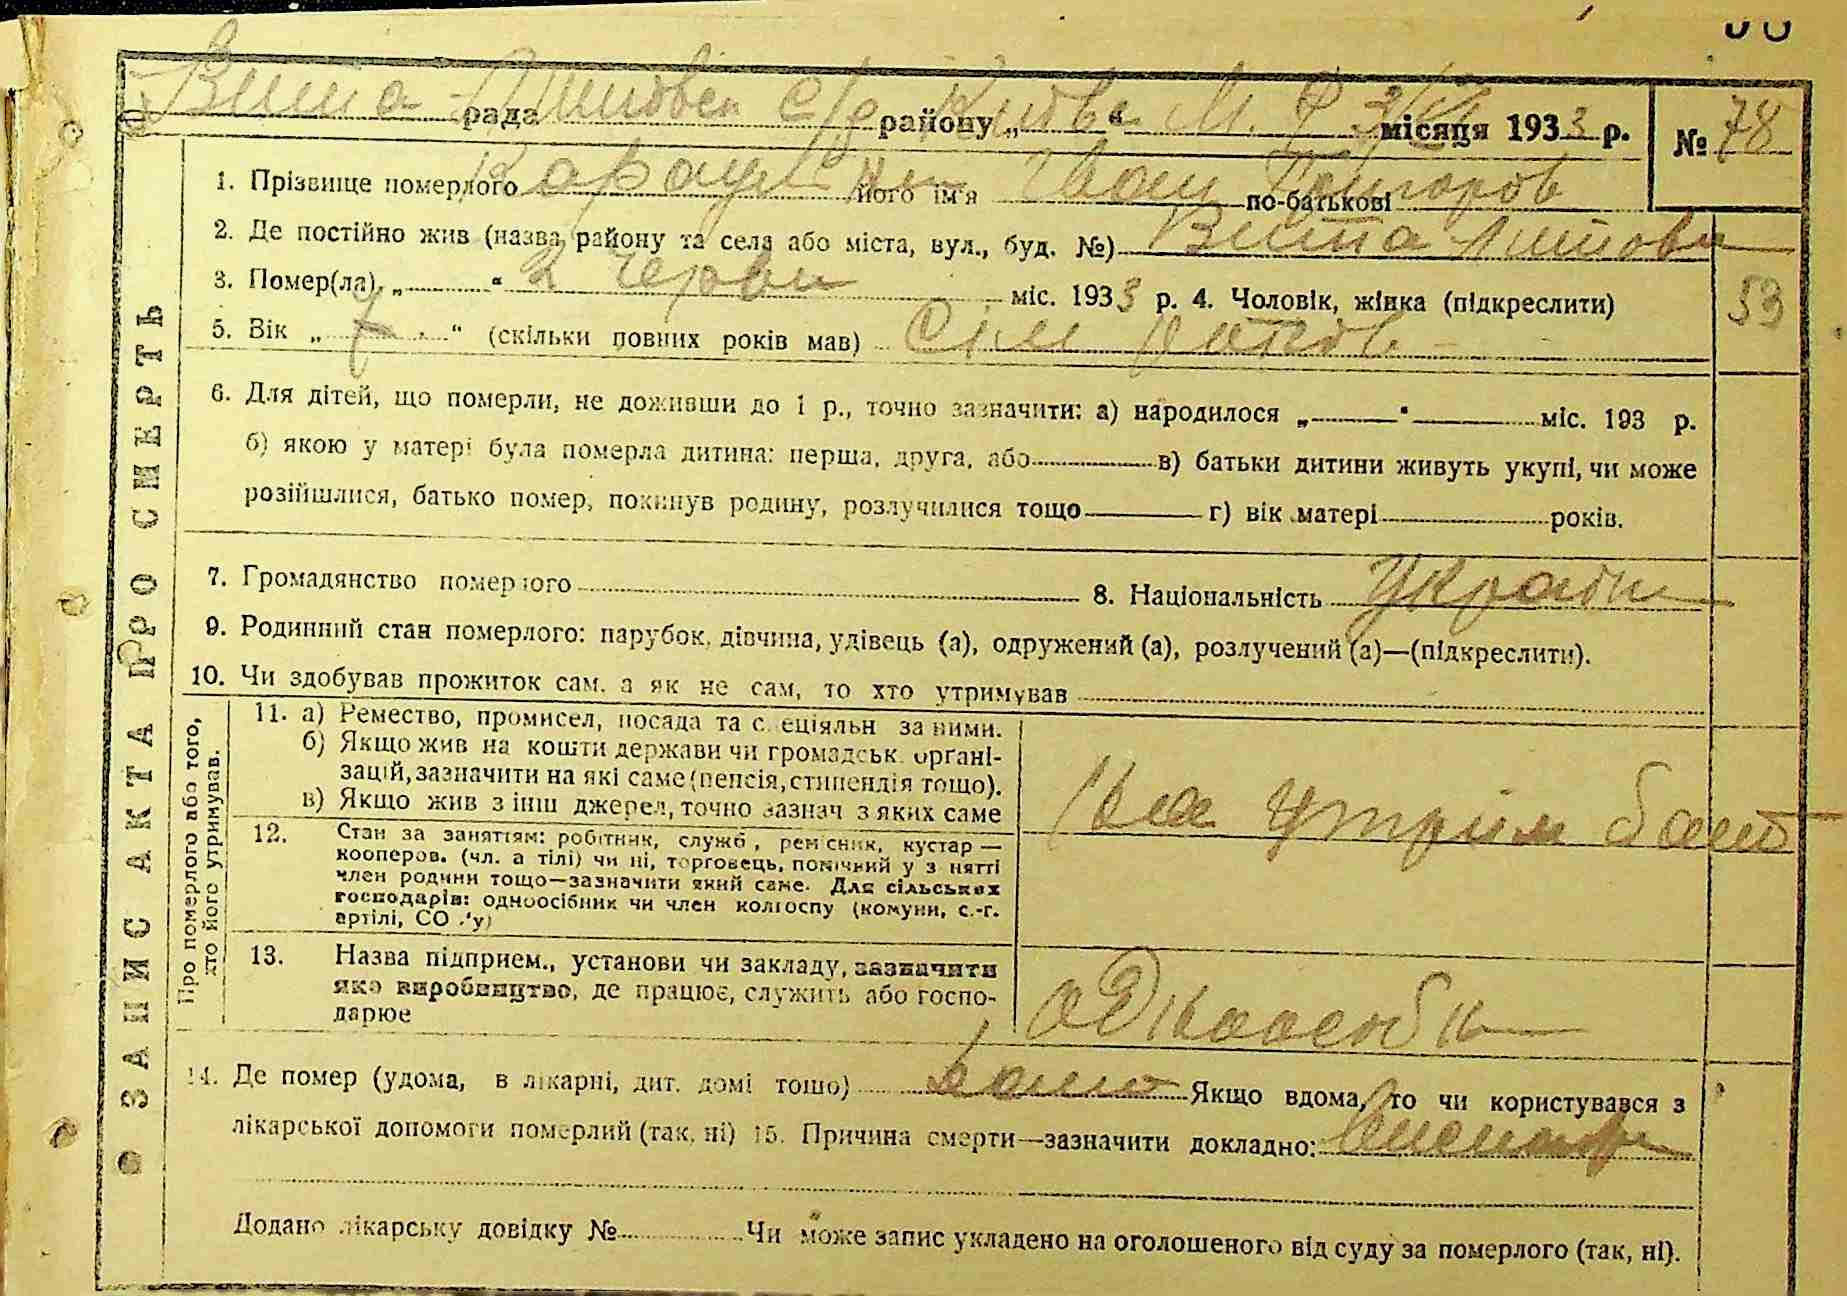 Вита Литовск с/р Київ М. Р 3/VI
рада району „ “ місяця 1933 р. № 78
1. Прізвище померлого його ім'я Іван по-батькові Григоров
2. Де постійно жив (назва району та села або міста, вул., буд. №) Вита Литовськ
3. Помер(ла) „ “ 2 червн міс. 1933 р. 4. Чоловік, жінка (підкреслити)
53
5. Вік „ 7 “ (скільки повних років мав) сім років
6. Для дітей, що померли, не доживши до 1 р., точно зазначити: а) народилося „ “ міс. 193 р.
б) якою у матері була померла дитина: перша, друга, або в) батьки дитини живуть укупі, чи може
розійшлися, батько помер, покинув родину, розлучилися тощо г) вік матері років.
7. Громадянство померлого 8. Національність Україн
9. Родинний стан померлого: парубок, дівчина, удівець (а), одружений (а), розлучений (а)—(підкреслити).
10. Чи здобував прожиток сам, а як не сам, то хто утримував
ЗАПИС АКТА ПРО СМЕРТЬ
Про померлого або того,
хто його утримував.
11. а) Ремество, промисел, посада та спеціяльн за ними.
б) Якщо жив на кошти держави чи громадськ. органі-
зацій, зазначити на які саме (пенсія, стипендія тощо).
в) Якщо жив з інш джерел, точно зазнач з яких саме
На утрим бать
12. Стан за заняттям: робітник, служб, ремісник, кустар —
кооперов. (чл. артілі) чи ні, торговець, помічний у занятті
член родини тощо—зазначити який саме. Для сільських
господарів: одноосібник чи член колгоспу (комуни, с.-г.
артілі, СОЗ'у)
13. Назва підприєм., установи чи закладу, зазначити
яке виробництво, де працює, служить або госпо-
дарює
одноосібн
14. Де помер (удома, в лікарні, дит. домі тощо) Якщо вдома, то чи користувався з
лікарської допомоги померлий (так, ні) 15. Причина смерти—зазначити докладно:
Додано лікарську довідку № Чи може запис укладено на оголошеного від суду за померлого (так, ні).